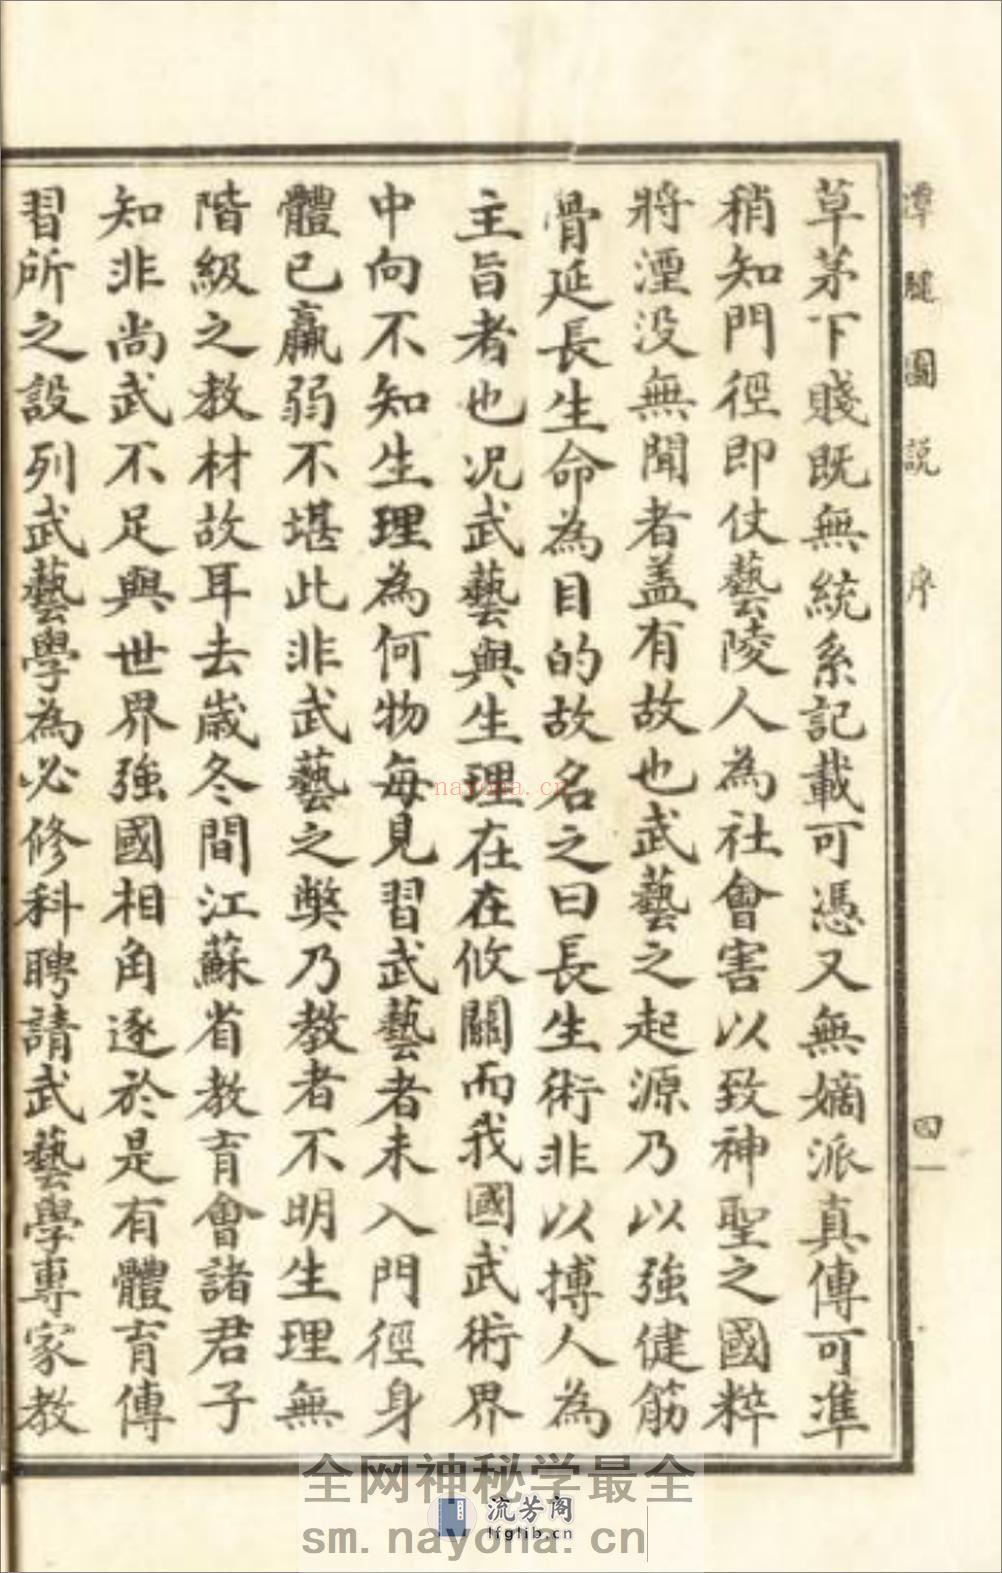 潭腿圖說 序 四一
草茅下賤既無統系記載可憑又無嫡派真傳可準
稍知門徑即仗藝陵人為社會害以致神聖之國粹
將湮没無聞者盖有故也武藝之起源乃以強健筋
骨延長生命為目的故名之曰長生術非以搏人為
主旨者也況武藝與生理在在攸關而我國武術界
中向不知生理為何物每見習武藝者未入門徑身
體已羸弱不堪此非武藝之獘乃教者不明生理無
階級之教材故耳去歲冬間江蘇省教育會諸君子
知非尚武不足與世界強國相角逐於是有體育傳
習所之設列武藝學為必修科聘請武藝學專家教
nayona.cn
全网神秘学最全
流芳阁
lfglib.cn
sm.nayona.cn